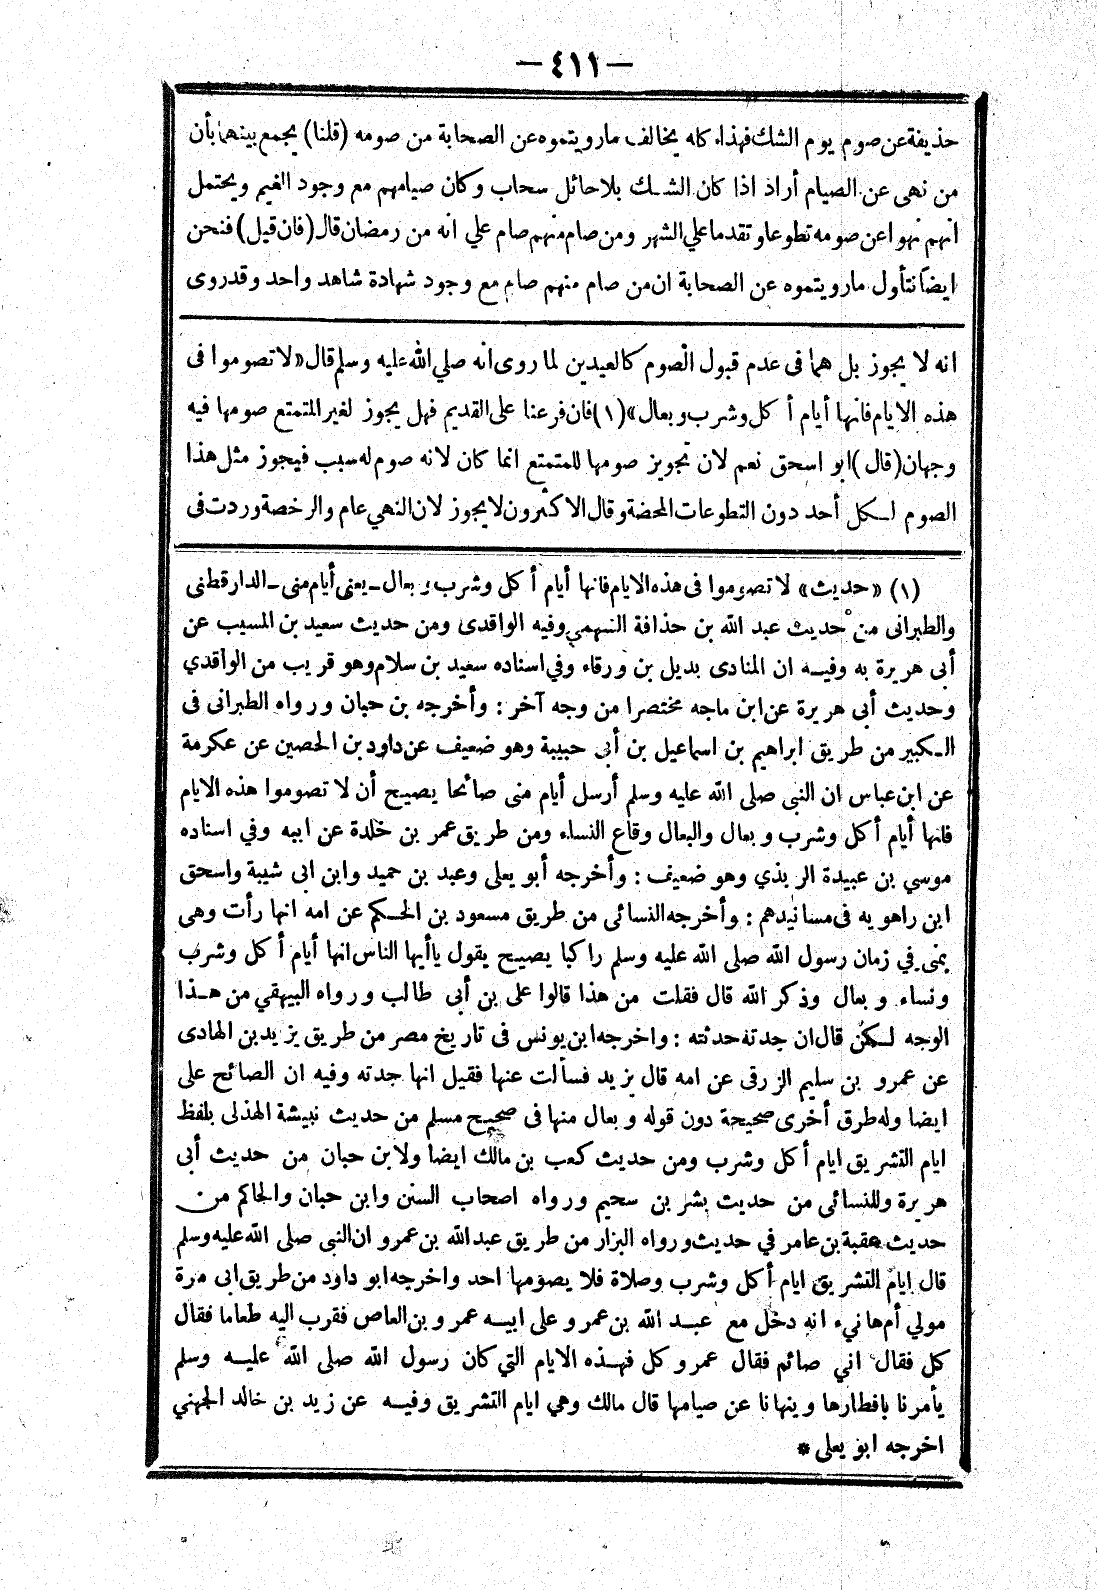 — ٤١١ —
حذيفة عن صوم يوم الشك فهذا كله يخالف مارويتموه عن الصحابة من صومه (قلنا) يجمع بينهما بأن
من نهى عن الصيام أراد اذا كان الشك بلا حائل سحاب وكان صيامهم مع وجود الغيم ويحتمل
انهم نهوا عن صومه تطوعا وتقدما علي الشهر ومن صام منهم صام علي انه من رمضان قال (فان قيل) فنحن
ايضا نتأول مارويتموه عن الصحابة ان من صام منهم صام مع وجود شهادة شاهد واحد وقد روى
انه لا يجوز بل هما فى عدم قبول الصوم كالعيدين لما روى انه صلي الله عليه وسلم قال «لا تصوموا فى
هذه الايام فانها أيام أكل وشرب وبعال» (١) فان فرعنا على القديم فهل يجوز لغير المتمتع صومها فيه
وجهان (قال) ابو اسحق نعم لان تجويز صومها للمتمتع انما كان لانه صوم له سبب فيجوز مثل هذا
الصوم لكل أحد دون التطوعات المحضة وقال الاكثرون لا يجوز لان النهي عام والرخصة وردت فى
(١) «حديث» لا تصوموا فى هذه الايام فانها أيام أكل وشرب وبعال ـ يعنى أيام منى ـ الدارقطنى
والطبرانى من حديث عبد الله بن حذافة السهمي وفيه الواقدى ومن حديث سعيد بن المسيب عن
أبى هريرة به وفيه ان المنادى بديل بن ورقاء وفي اسناده سعيد بن سلام وهو قريب من الواقدي
وحديث أبى هريرة عن ابن ماجه مختصرا من وجه آخر : وأخرجه بن حبان ورواه الطبرانى فى
الكبير من طريق ابراهيم بن اسماعيل بن أبى حبيبة وهو ضعيف عن داود بن الحصين عن عكرمة
عن ابن عباس ان النبى صلى الله عليه وسلم أرسل أيام منى صائحا يصيح أن لا تصوموا هذه الايام
فانها أيام أكل وشرب وبعال والبعال وقاع النساء ومن طريق عمر بن خلدة عن ابيه وفي اسناده
موسي بن عبيدة الربذي وهو ضعيف : وأخرجه أبو يعلى وعبد بن حميد وابن ابى شيبة واسحق
ابن راهويه فى مسانيدهم : وأخرجه النسائى من طريق مسعود بن الحكم عن امه انها رأت وهى
بمنى في زمان رسول الله صلى الله عليه وسلم راكبا يصيح يقول يا أيها الناس انها أيام أكل وشرب
ونساء وبعال وذكر الله قال فقلت من هذا قالوا على بن أبى طالب ورواه البيهقي من هذا
الوجه لكن قال ان جدته حدثته : واخرجه ابن يونس فى تاريخ مصر من طريق يزيد بن الهادى
عن عمرو بن سليم الزرقى عن امه قال يزيد فسألت عنها فقيل انها جدته وفيه ان الصائح على
ايضا وله طرق أخرى صحيحة دون قوله وبعال منها فى صحيح مسلم من حديث نبيشة الهذلى بلفظ
ايام التشريق ايام أكل وشرب ومن حديث كعب بن مالك ايضا ولابن حبان من حديث أبى
هريرة وللنسائى من حديث بشر بن سحيم ورواه اصحاب السنن وابن حبان والحاكم من
حديث عقبة بن عامر في حديث ورواه البزار من طريق عبد الله بن عمرو ان النبى صلى الله عليه وسلم
قال ايام التشريق ايام أكل وشرب وصلاة فلا يصومها احد واخرجه ابو داود من طريق ابى مرة
مولي أم هانيء انه دخل مع عبد الله بن عمرو على ابيه عمرو بن العاص فقرب اليه طعاما فقال
كل فقال اني صائم فقال عمرو كل فهذه الايام التي كان رسول الله صلى الله عليه وسلم
يأمرنا بافطارها وينهانا عن صيامها قال مالك وهي ايام التشريق وفيه عن زيد بن خالد الجهني
اخرجه ابو يعلى *